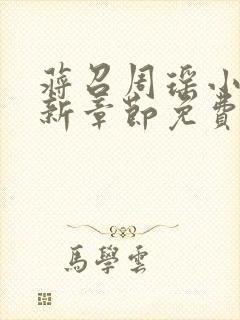 蔣召周瑶小
新章節免費
馬學雲